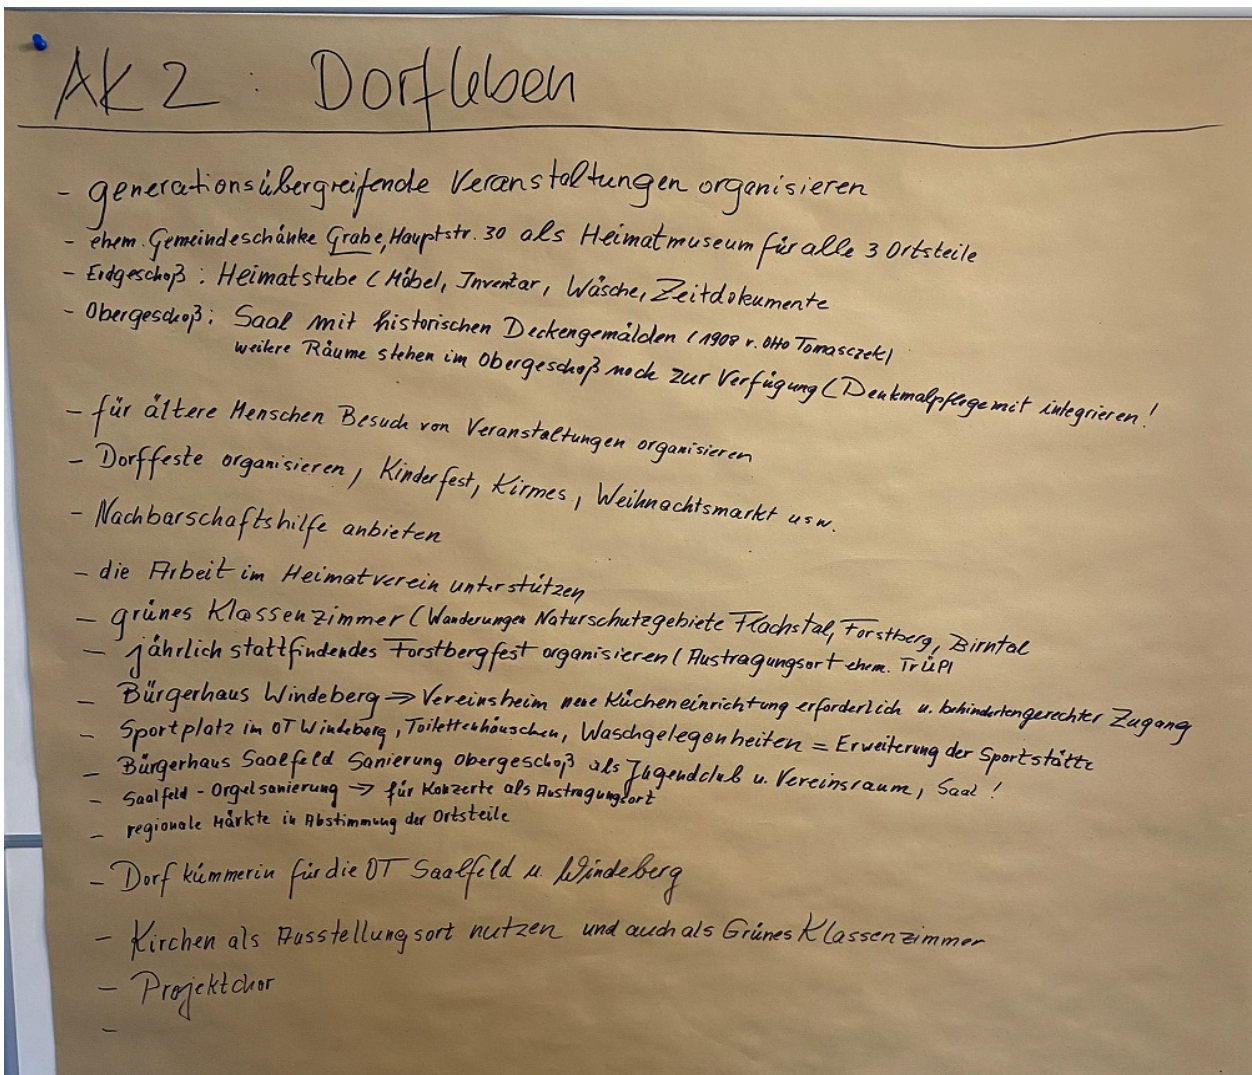 AK 2 : Dorfleben
- generationsübergreifende Veranstaltungen organisieren
- ehem. Gemeindeschänke Grabe, Hauptstr. 30 als Heimatmuseum für alle 3 Ortsteile
- Erdgeschoß : Heimatstube ( Möbel, Inventar, Wäsche, Zeitdokumente
- Obergeschoß: Saal mit historischen Deckengemälden ( 1908 v. Otto Tomasczek)
weitere Räume stehen im Obergeschoß noch zur Verfügung ( Denkmalpflege mit integrieren !
- für ältere Menschen Besuch von Veranstaltungen organisieren
- Dorffeste organisieren, Kinderfest, Kirmes, Weihnachtsmarkt usw.
- Nachbarschaftshilfe anbieten
- die Arbeit im Heimatverein unterstützen
- grünes Klassenzimmer ( Wanderungen Naturschutzgebiete Flachstal, Forstberg, Birntal
- jährlich stattfindendes Forstbergfest organisieren ( Austragungsort ehem. TrÜPl
- Bürgerhaus Windeberg => Vereinsheim neue Kücheneinrichtung erforderlich u. behindertengerechter Zugang
- Sportplatz im OT Windeberg, Toilettenhäuschen, Waschgelegenheiten = Erweiterung der Sportstätte
- Bürgerhaus Saalfeld Sanierung Obergeschoß als Jugendclub u. Vereinsraum, Saal !
- Saalfeld - Orgelsanierung -> für Konzerte als Austragungsort
- regionale Märkte in Abstimmung der Ortsteile
- Dorfkümmerin für die OT Saalfeld u. Windeberg
- Kirchen als Ausstellungsort nutzen und auch als Grünes Klassenzimmer
- Projektchor
-